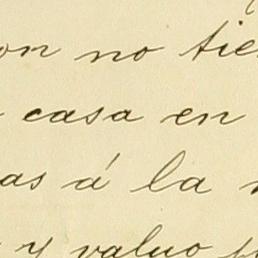 on no tie
casa en
as á la
y valuo